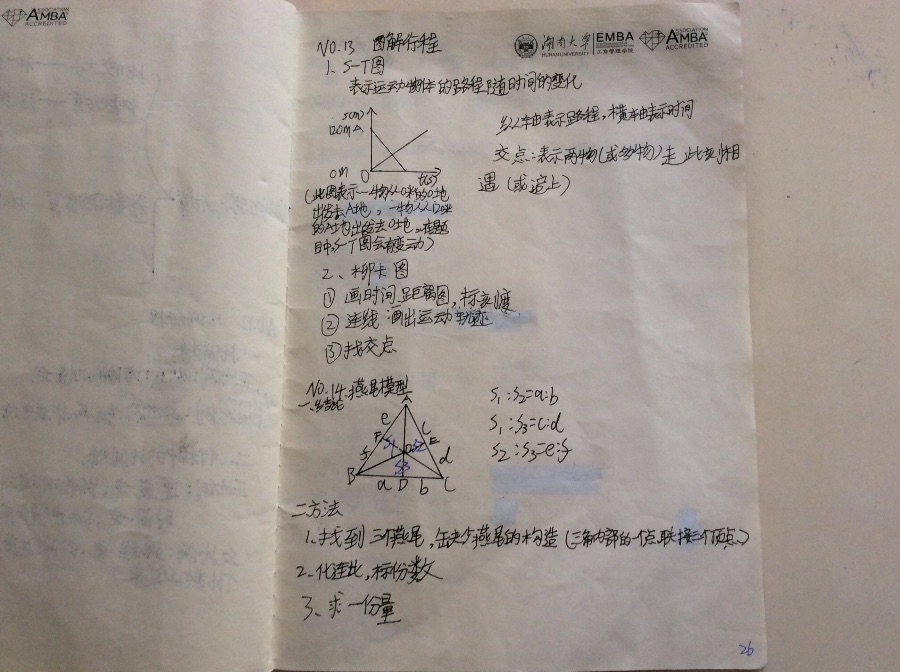 AMBA
ACCREDITED
NO.13 图解行程
湖南大学
HUNAN UNIVERSITY
EMBA
工商管理学院
ASSOCIATION
AMBA
ACCREDITED
1、S-T图
表示运动物体的路程随时间的变化
S(m)
120m A
0m 0
t(s)
纵轴表示路程,横轴表示时间
交点:表示两物(或多物)走 此刻相
遇(或追上)
(此图表示一物从0米的0地
出发去A地,一物从120米
的A地出发去0地,在题
目中,S-T图会有变动)
2、柳卡图
① 画时间 距离图,标刻度
② 连线 画出运动轨迹
③ 找交点
NO.14.燕尾模型
一、结论
A
e c
F E
S1 O S2
f d
S3
B a D b C
S1:S2=a:b
S1:S3=c:d
S2:S3=e:f
二方法
1、找到三个燕尾,缺少燕尾的构造(三角内部的一个点联接三个顶点)
2、化连比,标份数
3、求一份量
26